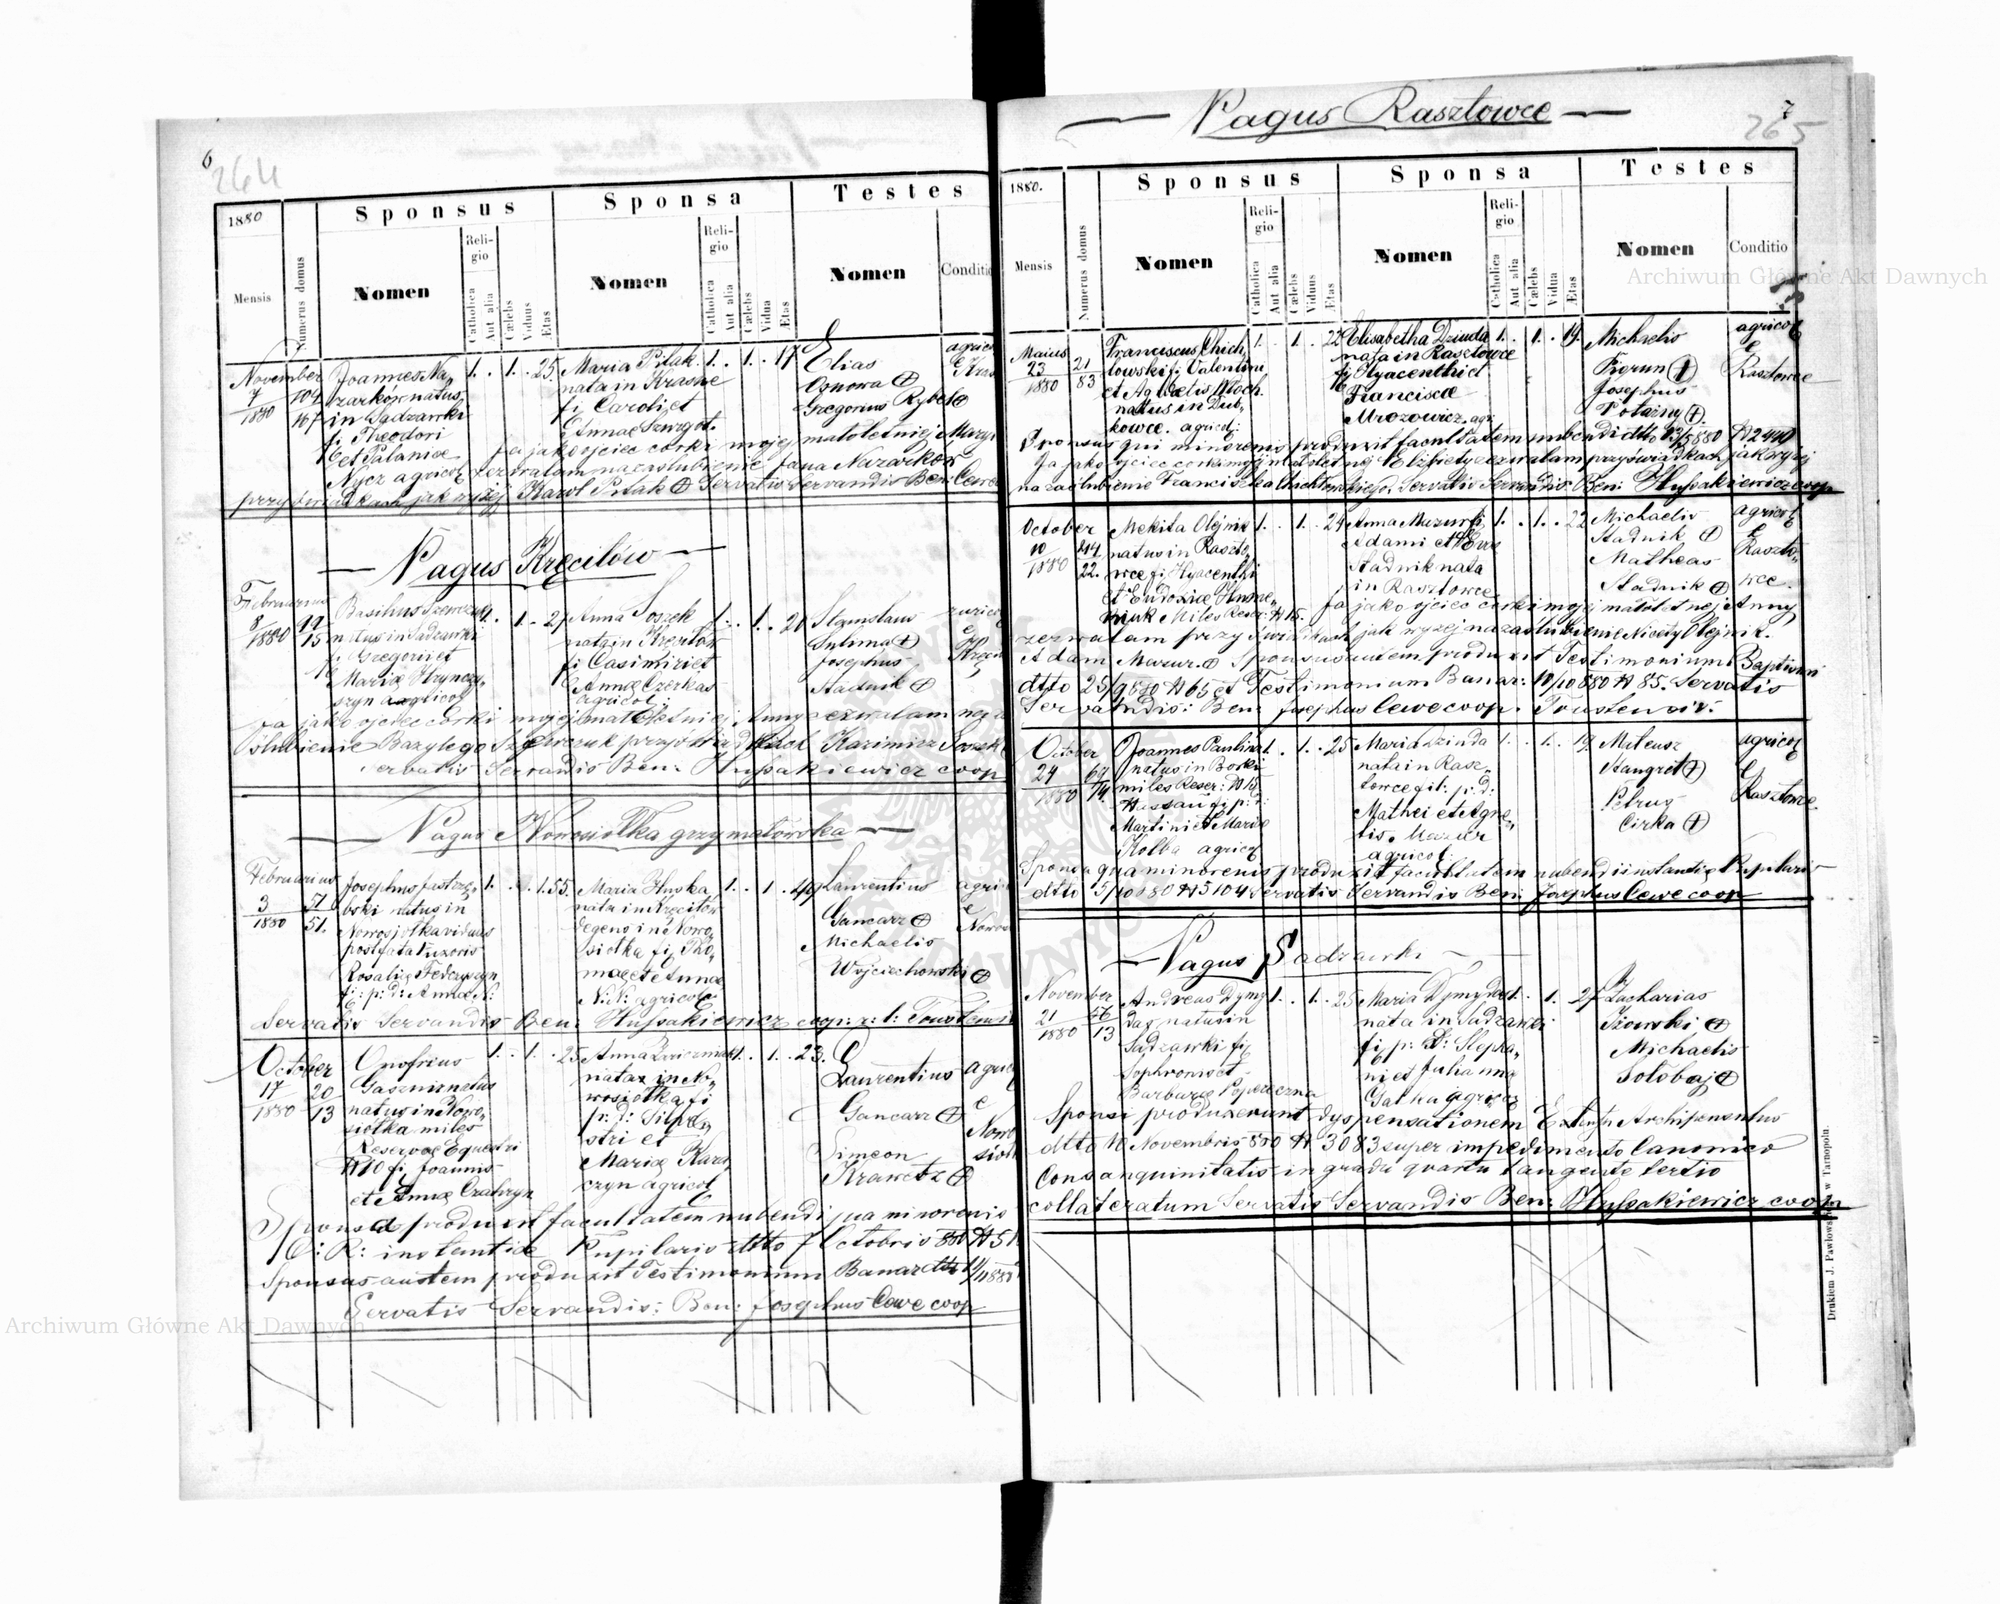 6
264
1880
Sponsus
Sponsa
Testes
Mensis
Numerus domus
Nomen
Religio
Catholica
Aut alia
Cælebs
Viduus
Ætas
Nomen
Religio
Catholica
Aut alia
Cælebs
Vidua
Ætas
Nomen
Conditio
November
7 104
1880 107
Joannes Na-
zarkow natus
in Sadzawki
fi Theodori
et Palaniæ
Nycz agricol
1. . 1. . 25.
Maria Pitak
nata in Krasne
fi Caroli et
Annæ Szwgot.
1. . 1. . 17
Elias
Osnowa
Gregorius Rybak
agricol
Ja jako ojciec córki mojej małoletniej Maryi
zezwalam na zaślubienie Jana Nazarków
przy świadkach jak wyżej Karol Pitak Servatis Servandis Ben: Cewe
Pagus Kręciłów
Februarius
8
1880 15
Basilius Szewczuk
natus in Sadzawki
fi Gregorii et
Mariæ Hrynczy-
szyn agricol
1. . 1. . 27
Anna Soszek
nata in Kręciłów
fi Casimiri et
Annæ Czerkas
agricol.
1. . 1. . 20
Stanislaus
Sulima
Josephus
Stadnik
Ja jako ojciec córki mojej małoletniej Anny zezwalam na za
ślubienie Bazylego Szewczuk przy świadkach Kazimierz Soszek
Servatis Servandis Ben: Hussakiewicz coop
Pagus Nowosiołka grzymałowska
Februarius
3 51
1880 51.
Josephus Jastrzę-
bski natus in
Nowosiołka viduus
post fata uxoris
Rosaliæ Fedczyszyn
fi: p: d: Annæ N:
1. . . 1. 55.
Maria Huska
nata in Kręciłów
degens in Nowo-
siołka fi Tho-
mæ et Annæ
N: N: agricolæ
1. . 1 . 49
Laurentius
Gancarz
Michaelis
Wojciechowski
Servatis Servandis Ben: Hussakiewicz coop: r: l: Touste
October
17 20
1880 13
Onofrius
natus in Nowo-
siołka miles
Reservæ Equestri
N 10 fi Joannis
et Annæ
1. . 1. . 25
Anna
nata in No-
wosiołka fi
p: d: Silve-
stri et
Mariæ Kara-
czyn agricol
1. . 1. . 23.
Laurentius
Gancarz
Simeon
Krawetz
Sponsa produxit facultatem nubendi qua minorenis
C: R: instantiæ Pupilaris dtto 7 Octobris 880 N 51
Sponsus autem produxit Testimonium Banar dtto
Servatis Servandis: Ben: Josephus Cewe coop
Pagus Rasztowce
7
265
1880.
Sponsus
Sponsa
Testes
Mensis
Numerus domus
Nomen
Religio
Catholica
Aut alia
Cælebs
Viduus
Ætas
Nomen
Religio
Catholica
Aut alia
Cælebs
Vidua
Ætas
Nomen
Conditio
Maius
23 21
1880 83
Franciscus Chich-
łowski fi Valentini
et Agnetis Woch
natus in Dub-
kowce. agricol:
1. . 1. . 22
Elisabetha Dziuda
nata in Rasztowce
fi Hyacenthi et
Franciscæ
Mrozowicz. agri
1. . 1. . 19.
Michaelis
Korun
Josephus
Potarny
agricol
Rasztowce
Sponsus qui minorenis produxit facultatem nubendi dtto 13/5 880 N 2440
Ja jako ojciec córki mojej małoletniej Elżbiety zezwalam przy świadkach jak wyżej
na zaślubienie Franciszka Chichłowskiego. Servatis Servandis: Ben: Hussakiewicz coop
October
10 214
1880 22.
Mekita Olejnik
natus in Raszto-
wce fi Hyacenthi
et Eudoxiæ Humé-
niuk Miles Reser: N 15.
1. . 1. . 24
Anna Mazur fi
Adami et Evæ
Stadnik nata
in Rasztowce
1. . 1. . 22
Michaelis
Stadnik
Matheas
Stadnik
agricol
Raszto-
wce.
Ja jako ojciec córki mojej małoletniej Anny
zezwalam przy świadkach jak wyżej na zaślubienie Nicety Olejnik.
Adam Mazur. Sponsus autem produxit Testimonium Baptismi
dtto 25/9 880 N 65 et Testimonium Banar: 10/10 880 N 85. Servatis
Servandis: Ben: Josephus Cewe coop. Toustensis.
October
24 67
1880 74.
Joannes Paulina
natus in Borki
miles Reser: N 15
Hassau fi p: d:
Martini et Mariæ
Kolba agricol
1. . 1. . 25
Maria Dziuda
nata in Rasz-
towce fil: p: d:
Mathei et Agne-
tis. Mazur
agricol.
1. . 1. . 19.
Mateusz
Stangret
Petrus
Cirka
agricol
Rasztowce.
Sponsa qua minorenis produxit facultatem nubendi instantiæ Pupilaris
dtto 5/10 880 N 5104 Servatis Servandis Ben: Josephus Cewe coop
Pagus Sadzawki
November
21 56
1880 13
Andreas Dymy-
das natus in
Sadzawki fi
Sophronii et
Barbaræ Popereczna
1. . 1. . 25
Maria Dymyda
nata in Sadzawki
fi: p: d: Stepha-
ni et Julianna
Gałka agricol
1. . 1. . 27
Zacharias
Iżowski
Michaelis
Sołobaj
Sponsi produxerunt dyspensationem Archipresulus
dtto 10 Novembris 880 N 3083 super impedimento Canonico
Consanquinitatis in gradu quartu tangente tertio
collateratum Servatis Servandis Ben: Hussakiewicz coop
Drukiem J. Pawłowskiego w Tarnopolu.
Archiwum Główne Akt Dawnych
Archiwum Główne Akt Dawnych